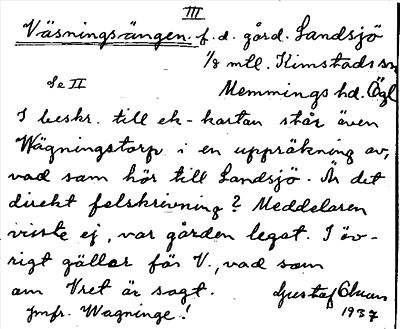 III
Väsningsängen. f. d. gård. Landsjö
1/8 mtl. Kimstads sn
Se II Memmings hd. Ögl
I beskr. till ek-kartan står även
Wägningstorp i en uppräkning av,
vad som hör till Landsjö. Är det
direkt felskrivning? Meddelaren
visste ej, var gården legat. I öv-
rigt gäller för V., vad som
om Vret är sagt. Gustaf
jmfr. Wagninge! 1937